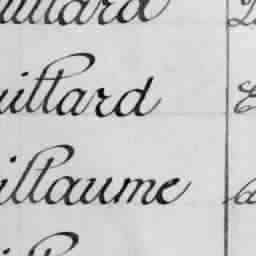 uillard
uillard
uillaume